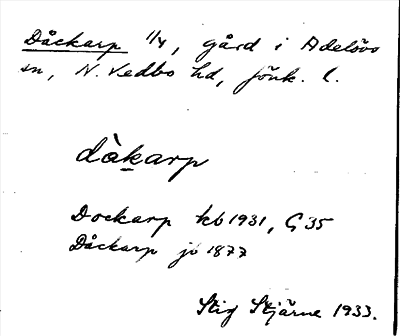 Dåckarp 1/4, gård i Adelövs
sn, N. Vedbo hd, Jönk. l.
dàkarp
Dockarp kb 1931, G 35
Dåckarp jr 1877
Stig Stjärne 1933.